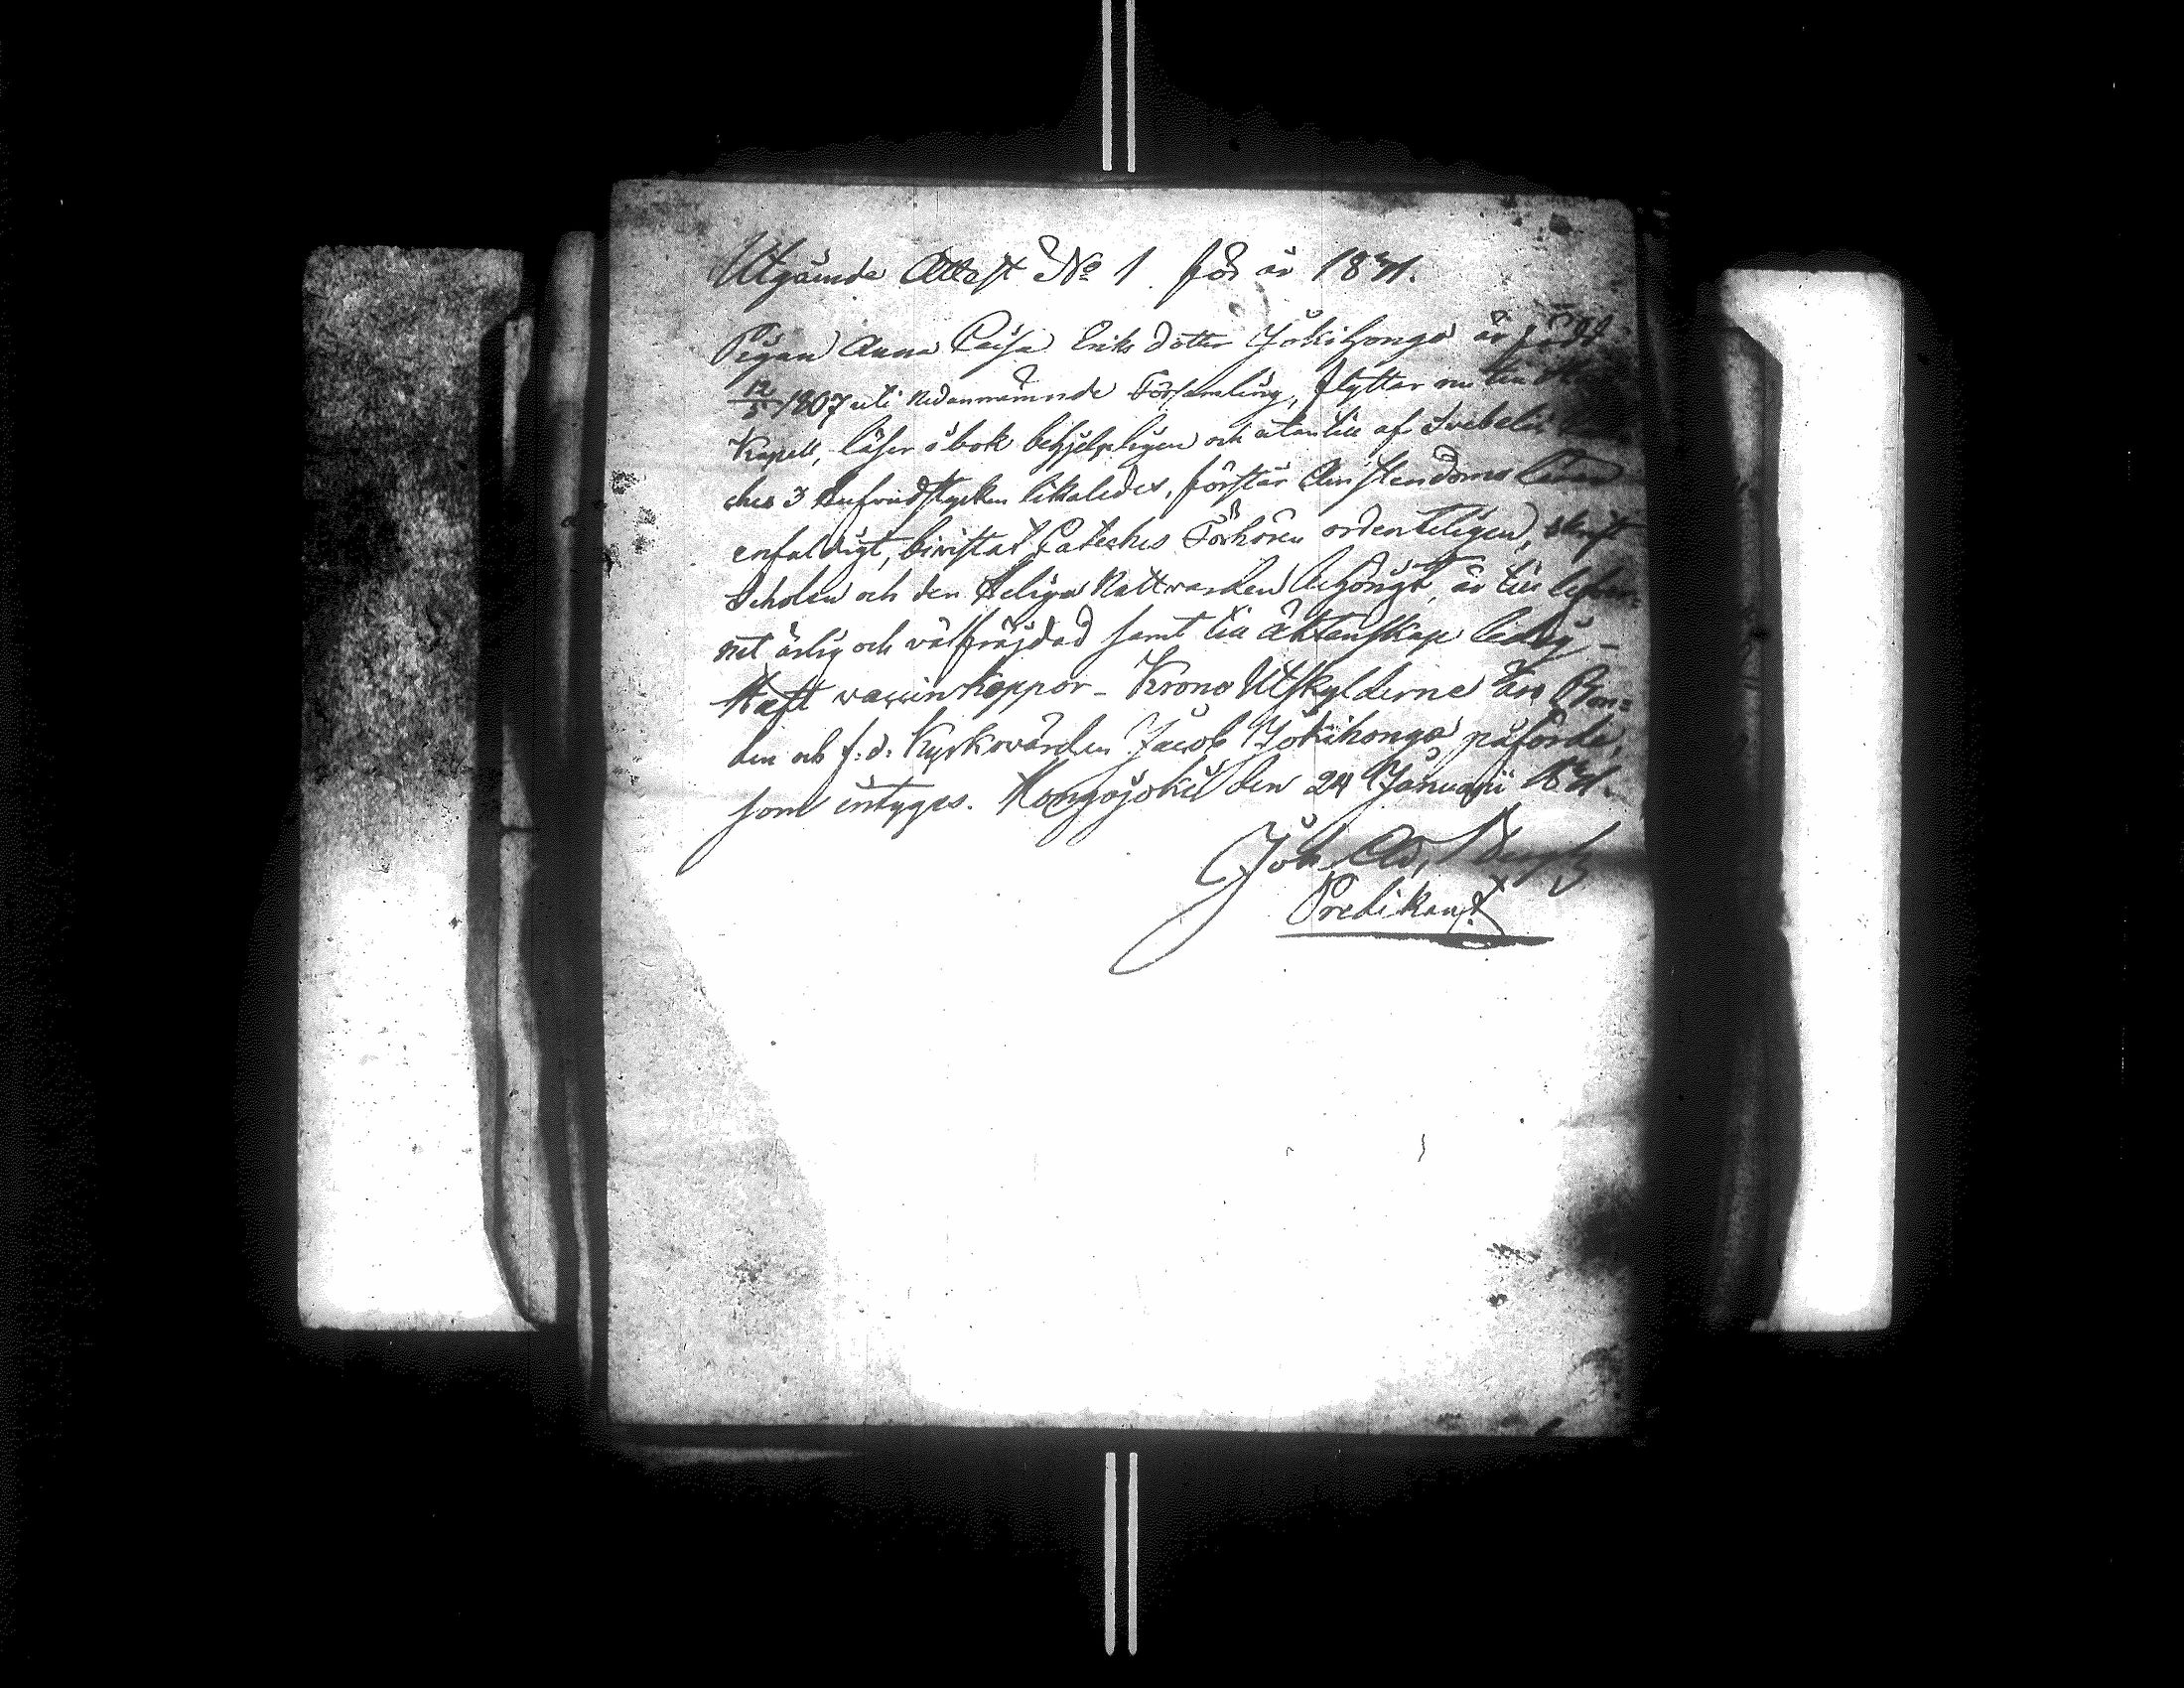 Utgående Attest No 1 för år 1841.
Pigan Anna Caisa Eriks dotter Jokihonga är född
12/5 1807 uti nedannämnde Församling, flyttar nu till
Kapell, läser i bok behjelpligen och utantill af Svebelii
ches 3 hufvudstycken likaledes, förstår Christendoms Läran
enfaldigt, bivistat Cateches Förhören ordenteligen, skrift
Scholan och den Heliga Nattvarden begängt, är till lefver=
net ärlig och välfräjdad samt till äktenskap ledig –
Haft vaccin koppor – Krono Utskylderne äro Bon=
den och f. d. Kyrkovärden Jacob Jokihonga påförde,
som intygas. Kongojoki den 24 Januari 1841.
Joh. Ad.
Predikant